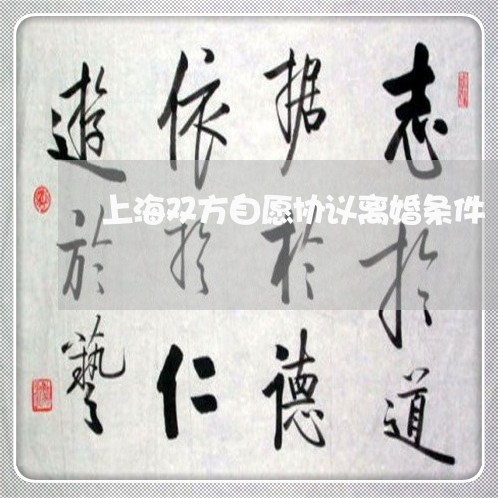 上海双方自愿协议离婚条件
志於道
据於德
依於仁
遊於藝